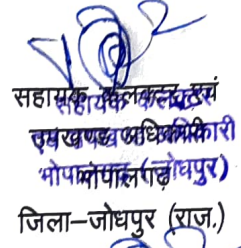 सहायक कलक्टर एवं
उपखण्ड अधिकारी
भोपालगढ़ (जोधपुर)
जिला-जोधपुर (राज.)